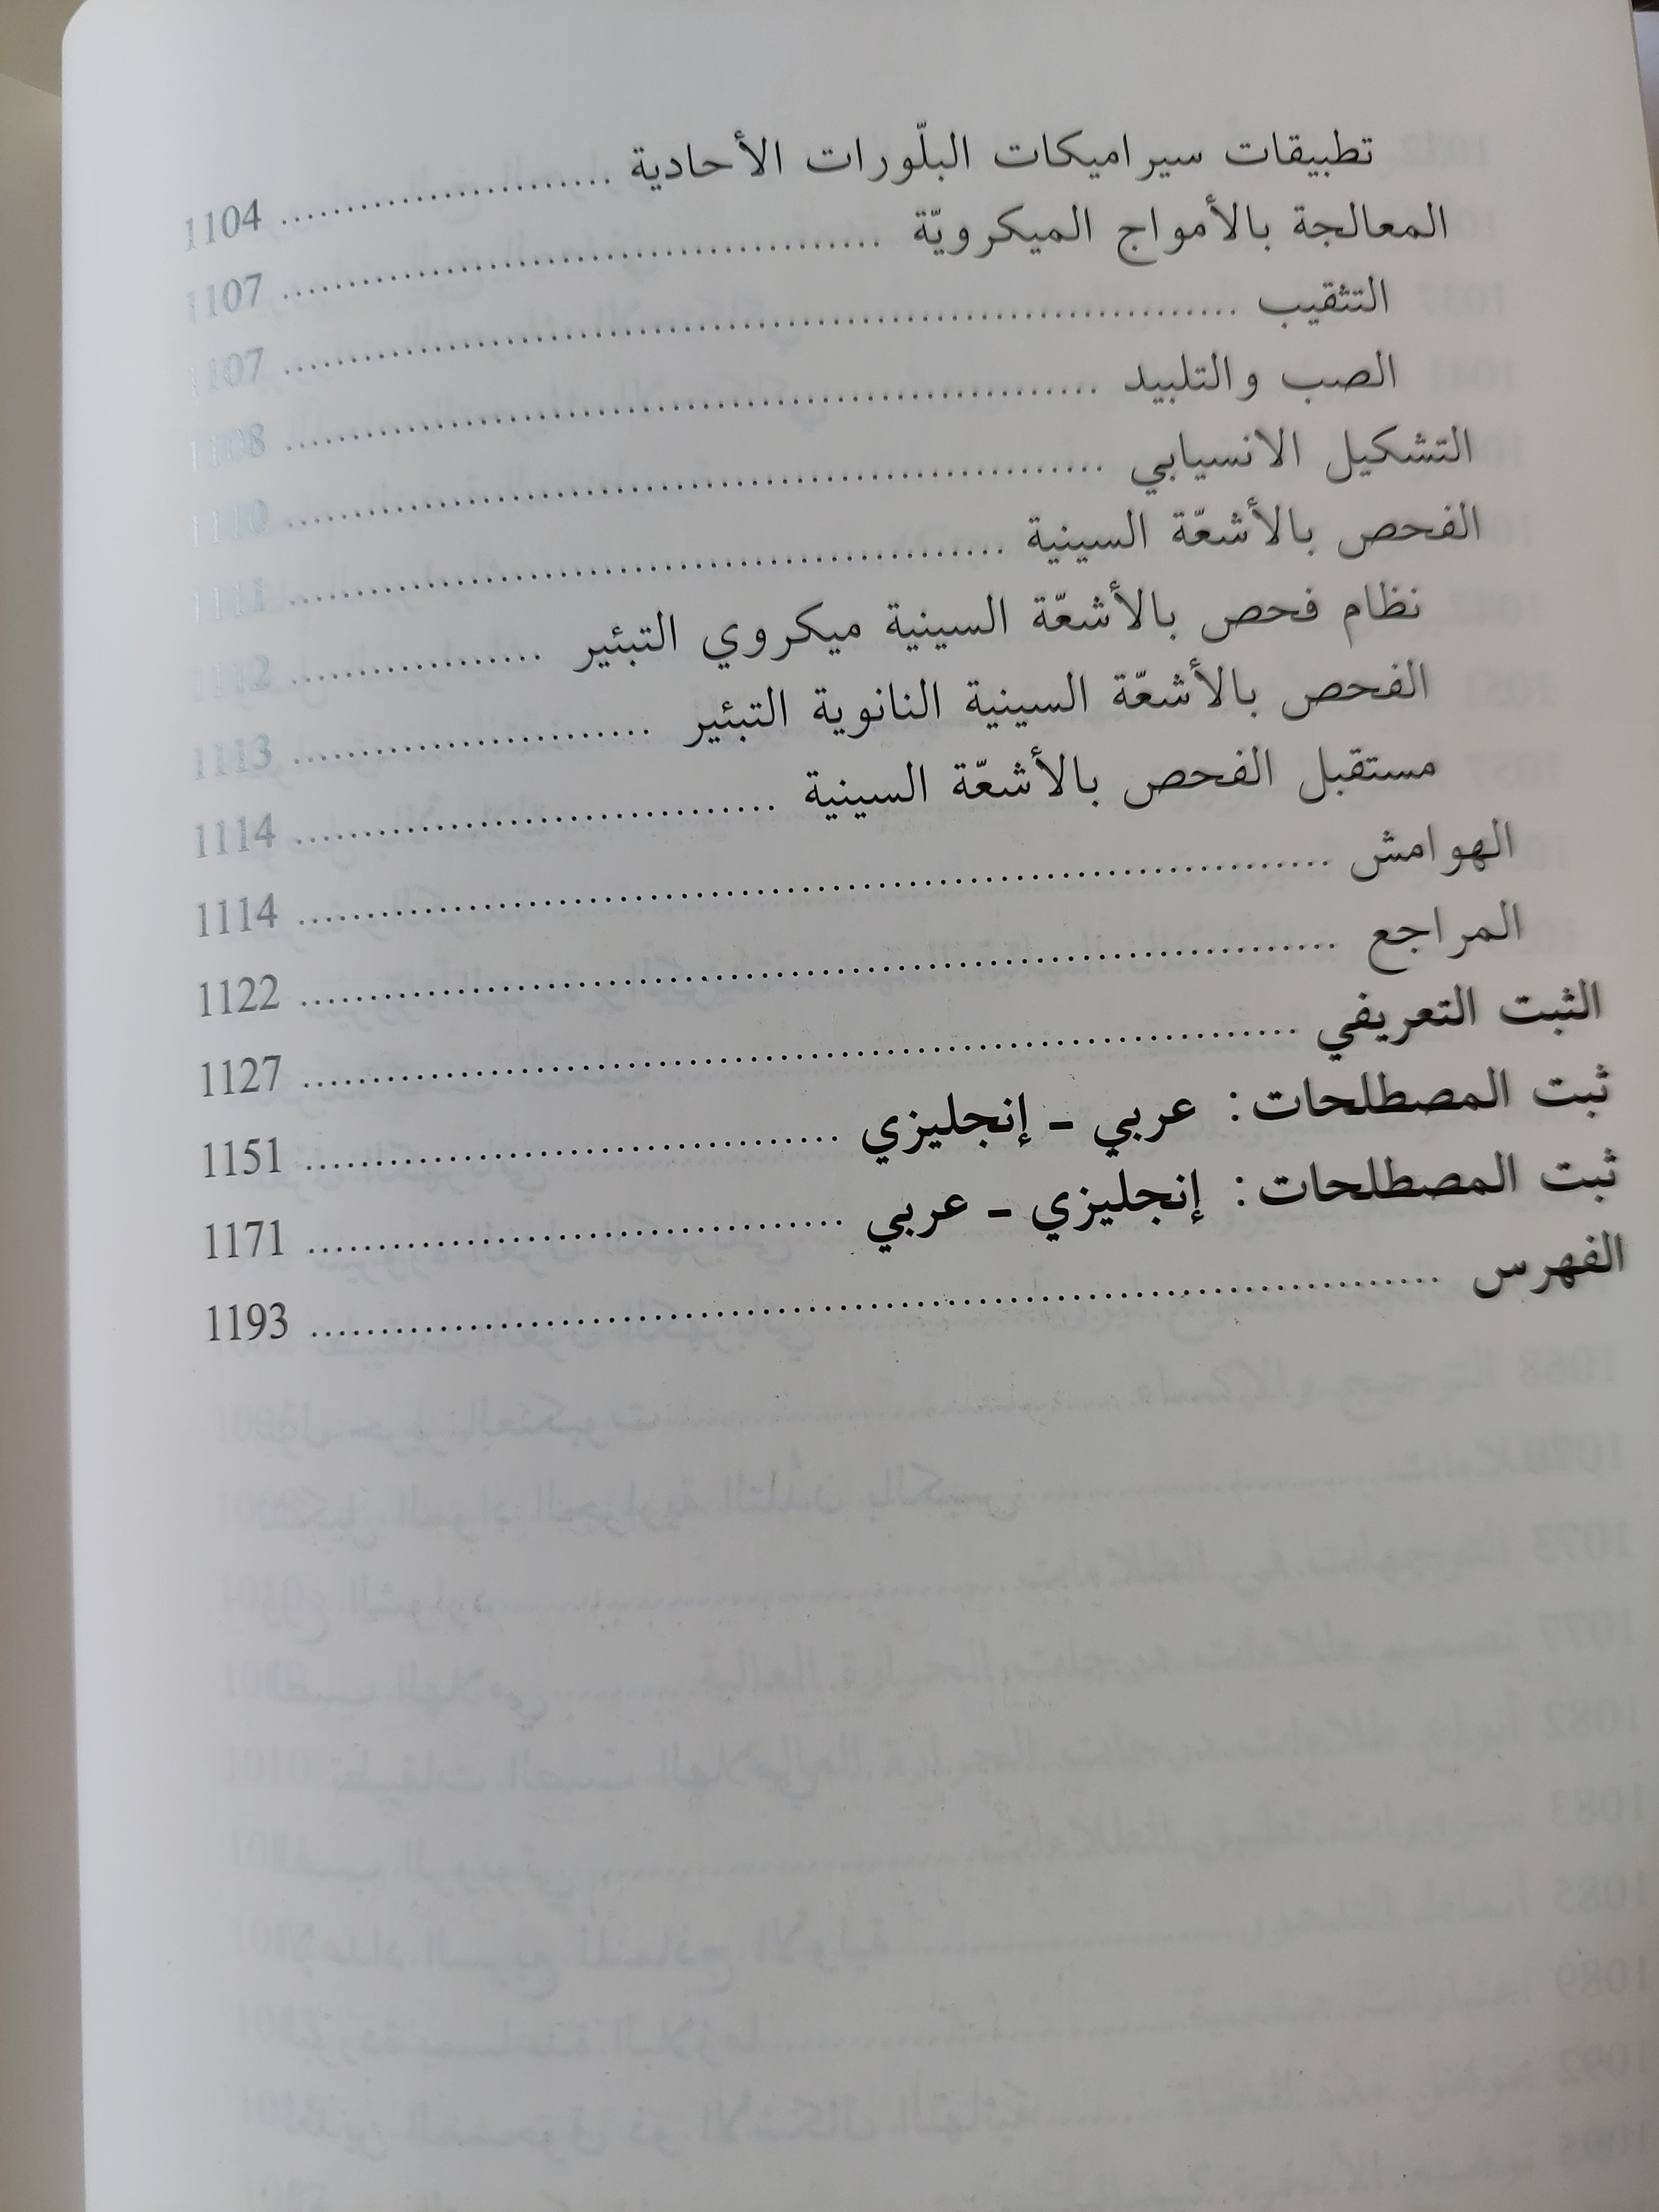 تطبيقات سيراميكات البلّورات الأحادية ........................ 1104
المعالجة بالأمواج الميكرويّة ........................ 1107
التثقيب ........................ 1107
الصب والتلبيد ........................ 1108
التشكيل الانسيابي ........................ 1110
الفحص بالأشعّة السينية ........................ 1111
نظام فحص بالأشعّة السينية ميكروي التبئير ........................ 1112
الفحص بالأشعّة السينية النانوية التبئير ........................ 1113
مستقبل الفحص بالأشعّة السينية ........................ 1114
الهوامش ........................ 1114
المراجع ........................ 1122
الثبت التعريفي ........................ 1127
ثبت المصطلحات: عربي - إنجليزي ........................ 1151
ثبت المصطلحات: إنجليزي - عربي ........................ 1171
الفهرس ........................ 1193